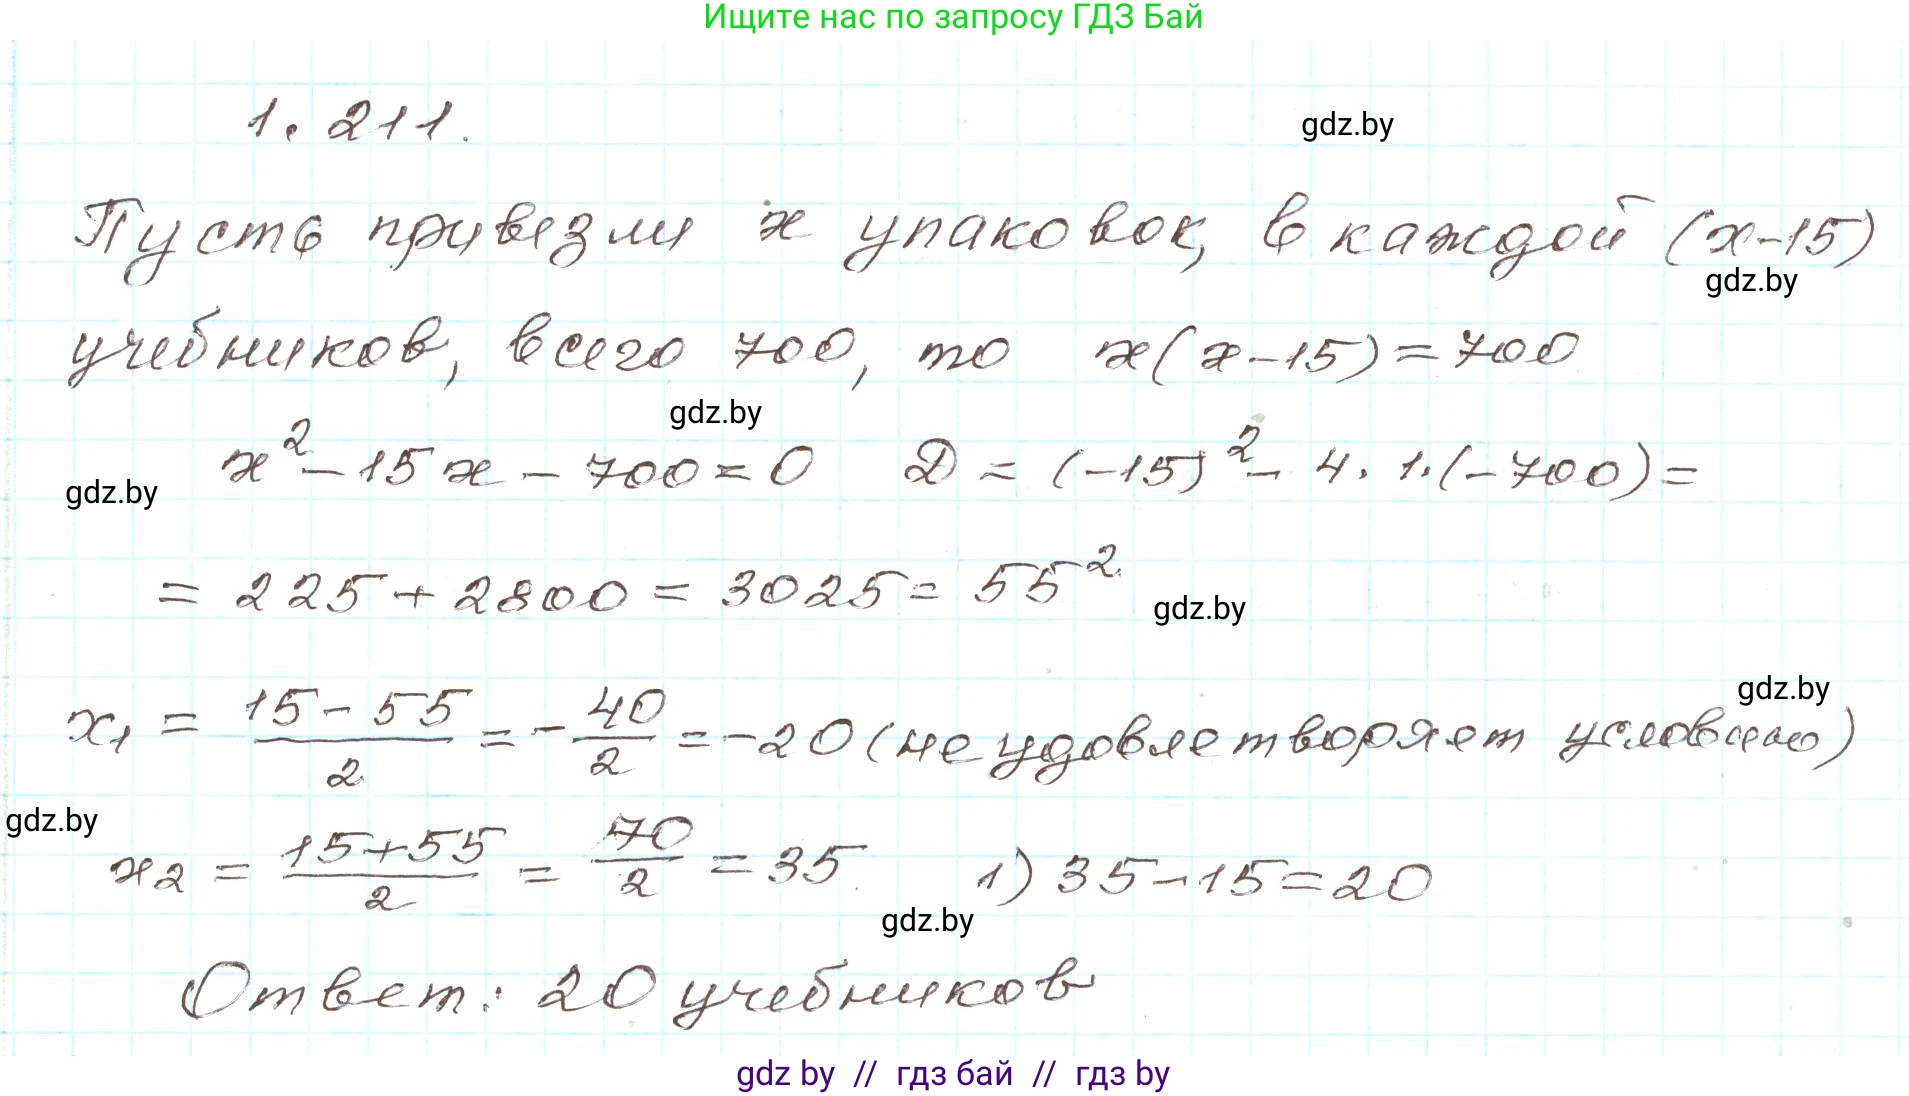 Ищите нас по запросу ГДЗ Бай
1.211.
gdz.by
Пусть привезли x упаковок, в каждой (x-15)
gdz.by
учебников, всего 700, то x(x-15)=700
gdz.by
x²-15x-700=0 D=(-15)²-4·1·(-700)=
gdz.by
=225+2800=3025=55²
gdz.by
gdz.by
x₁ = (15-55)/2 = -40/2 = -20 (не удовлетворяет условию)
gdz.by
x₂ = (15+55)/2 = 70/2 = 35 1) 35-15=20
gdz.by
Ответ: 20 учебников
gdz by // гдз бай // гдз by